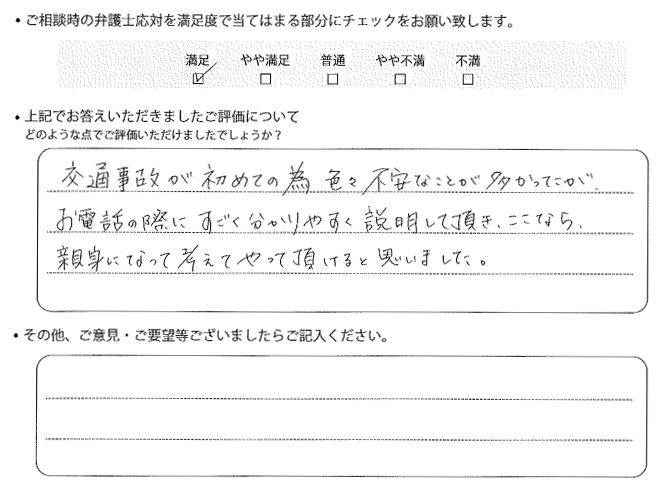 ・ご相談時の弁護士応対を満足度で当てはまる部分にチェックをお願い致します。
満足 やや満足 普通 やや不満 不満
・上記でお答えいただきましたご評価について
どのような点でご評価いただけましたでしょうか？
交通事故が初めての為 色々不安なことが多かったが、
お電話の際にすごく分かりやすく説明して頂き、ここなら、
親身になって考えてやって頂けると思いました。
・その他、ご意見・ご要望等ございましたらご記入ください。